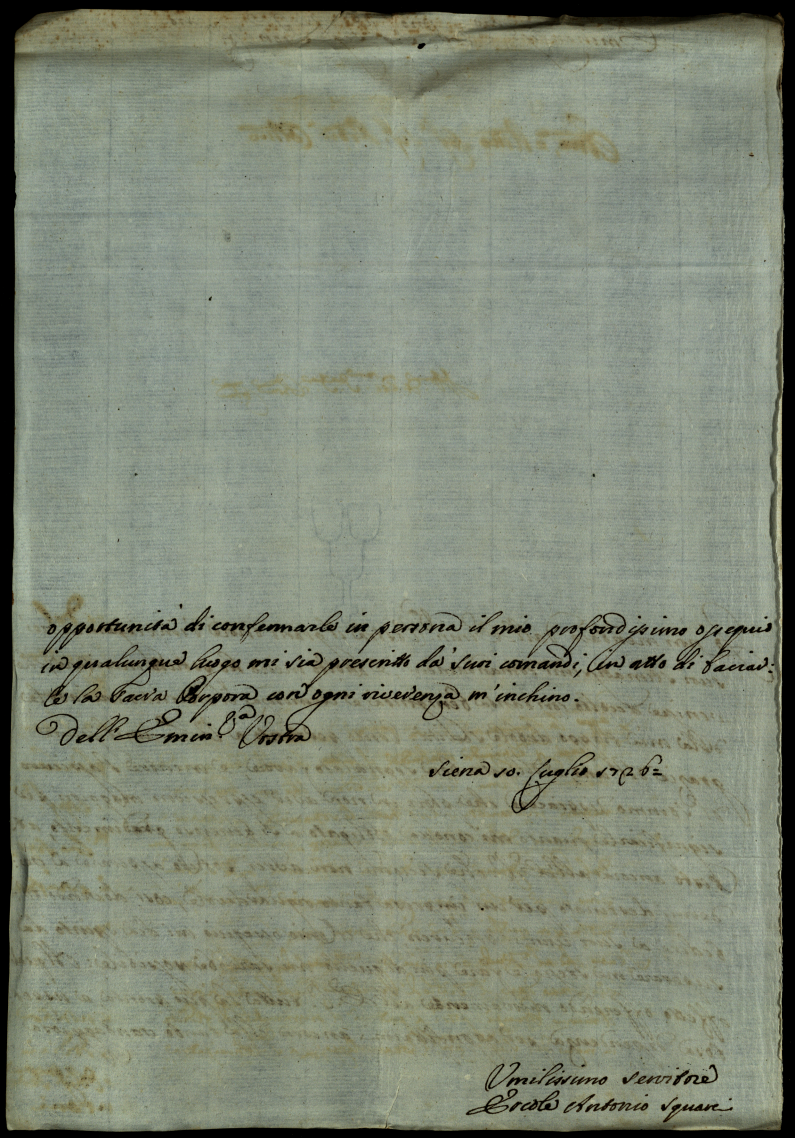 opportunità di confermarle in persona il mio profondissimo ossequio
in qualunque luogo mi sia prescritto da' suoi comandi, in atto di baciar=
le la Sacra Porpora con ogni riverenza m'inchino.
Dell' Emin.za Vostra
Siena 10. Luglio 1726=
Umilissimo Servitore
Ercole Antonio